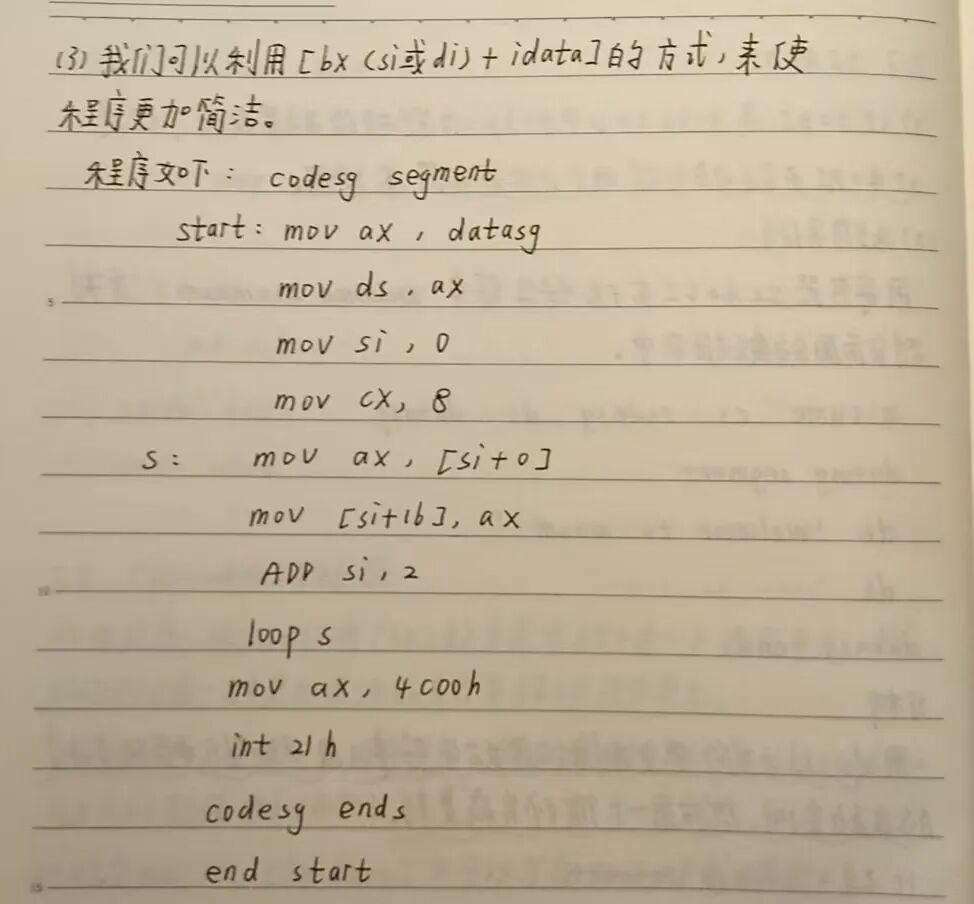 (3) 我们可以利用[bx(si或di)+idata]的方式,来使
程序更加简洁。
程序如下: codesg segment
start: mov ax, datasg
mov ds, ax
mov si, 0
mov cx, 8
s: mov ax, [si+0]
mov [si+16], ax
ADD si, 2
loop s
mov ax, 4c00h
int 21h
codesg ends
end start